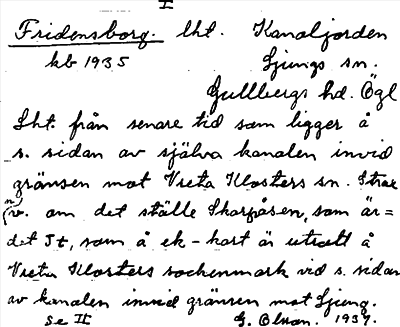 I
Fridensborg. lht. Kanaljorden
kb 1935 Ljungs sn.
Gullbergs hd. Ögl
Lht. från senare tid som ligger å
s. sidan av själva kanalen invid
gränsen mot Vreta Klosters sn. Strax
nv. om det ställe Skarpåsen, som är=
det It, som å ek-kart är utsatt å
Vreta Klosters sockenmark vid s. sidan
av kanalen invid gränsen mot Ljung.
Se II G. Olson. 1937.